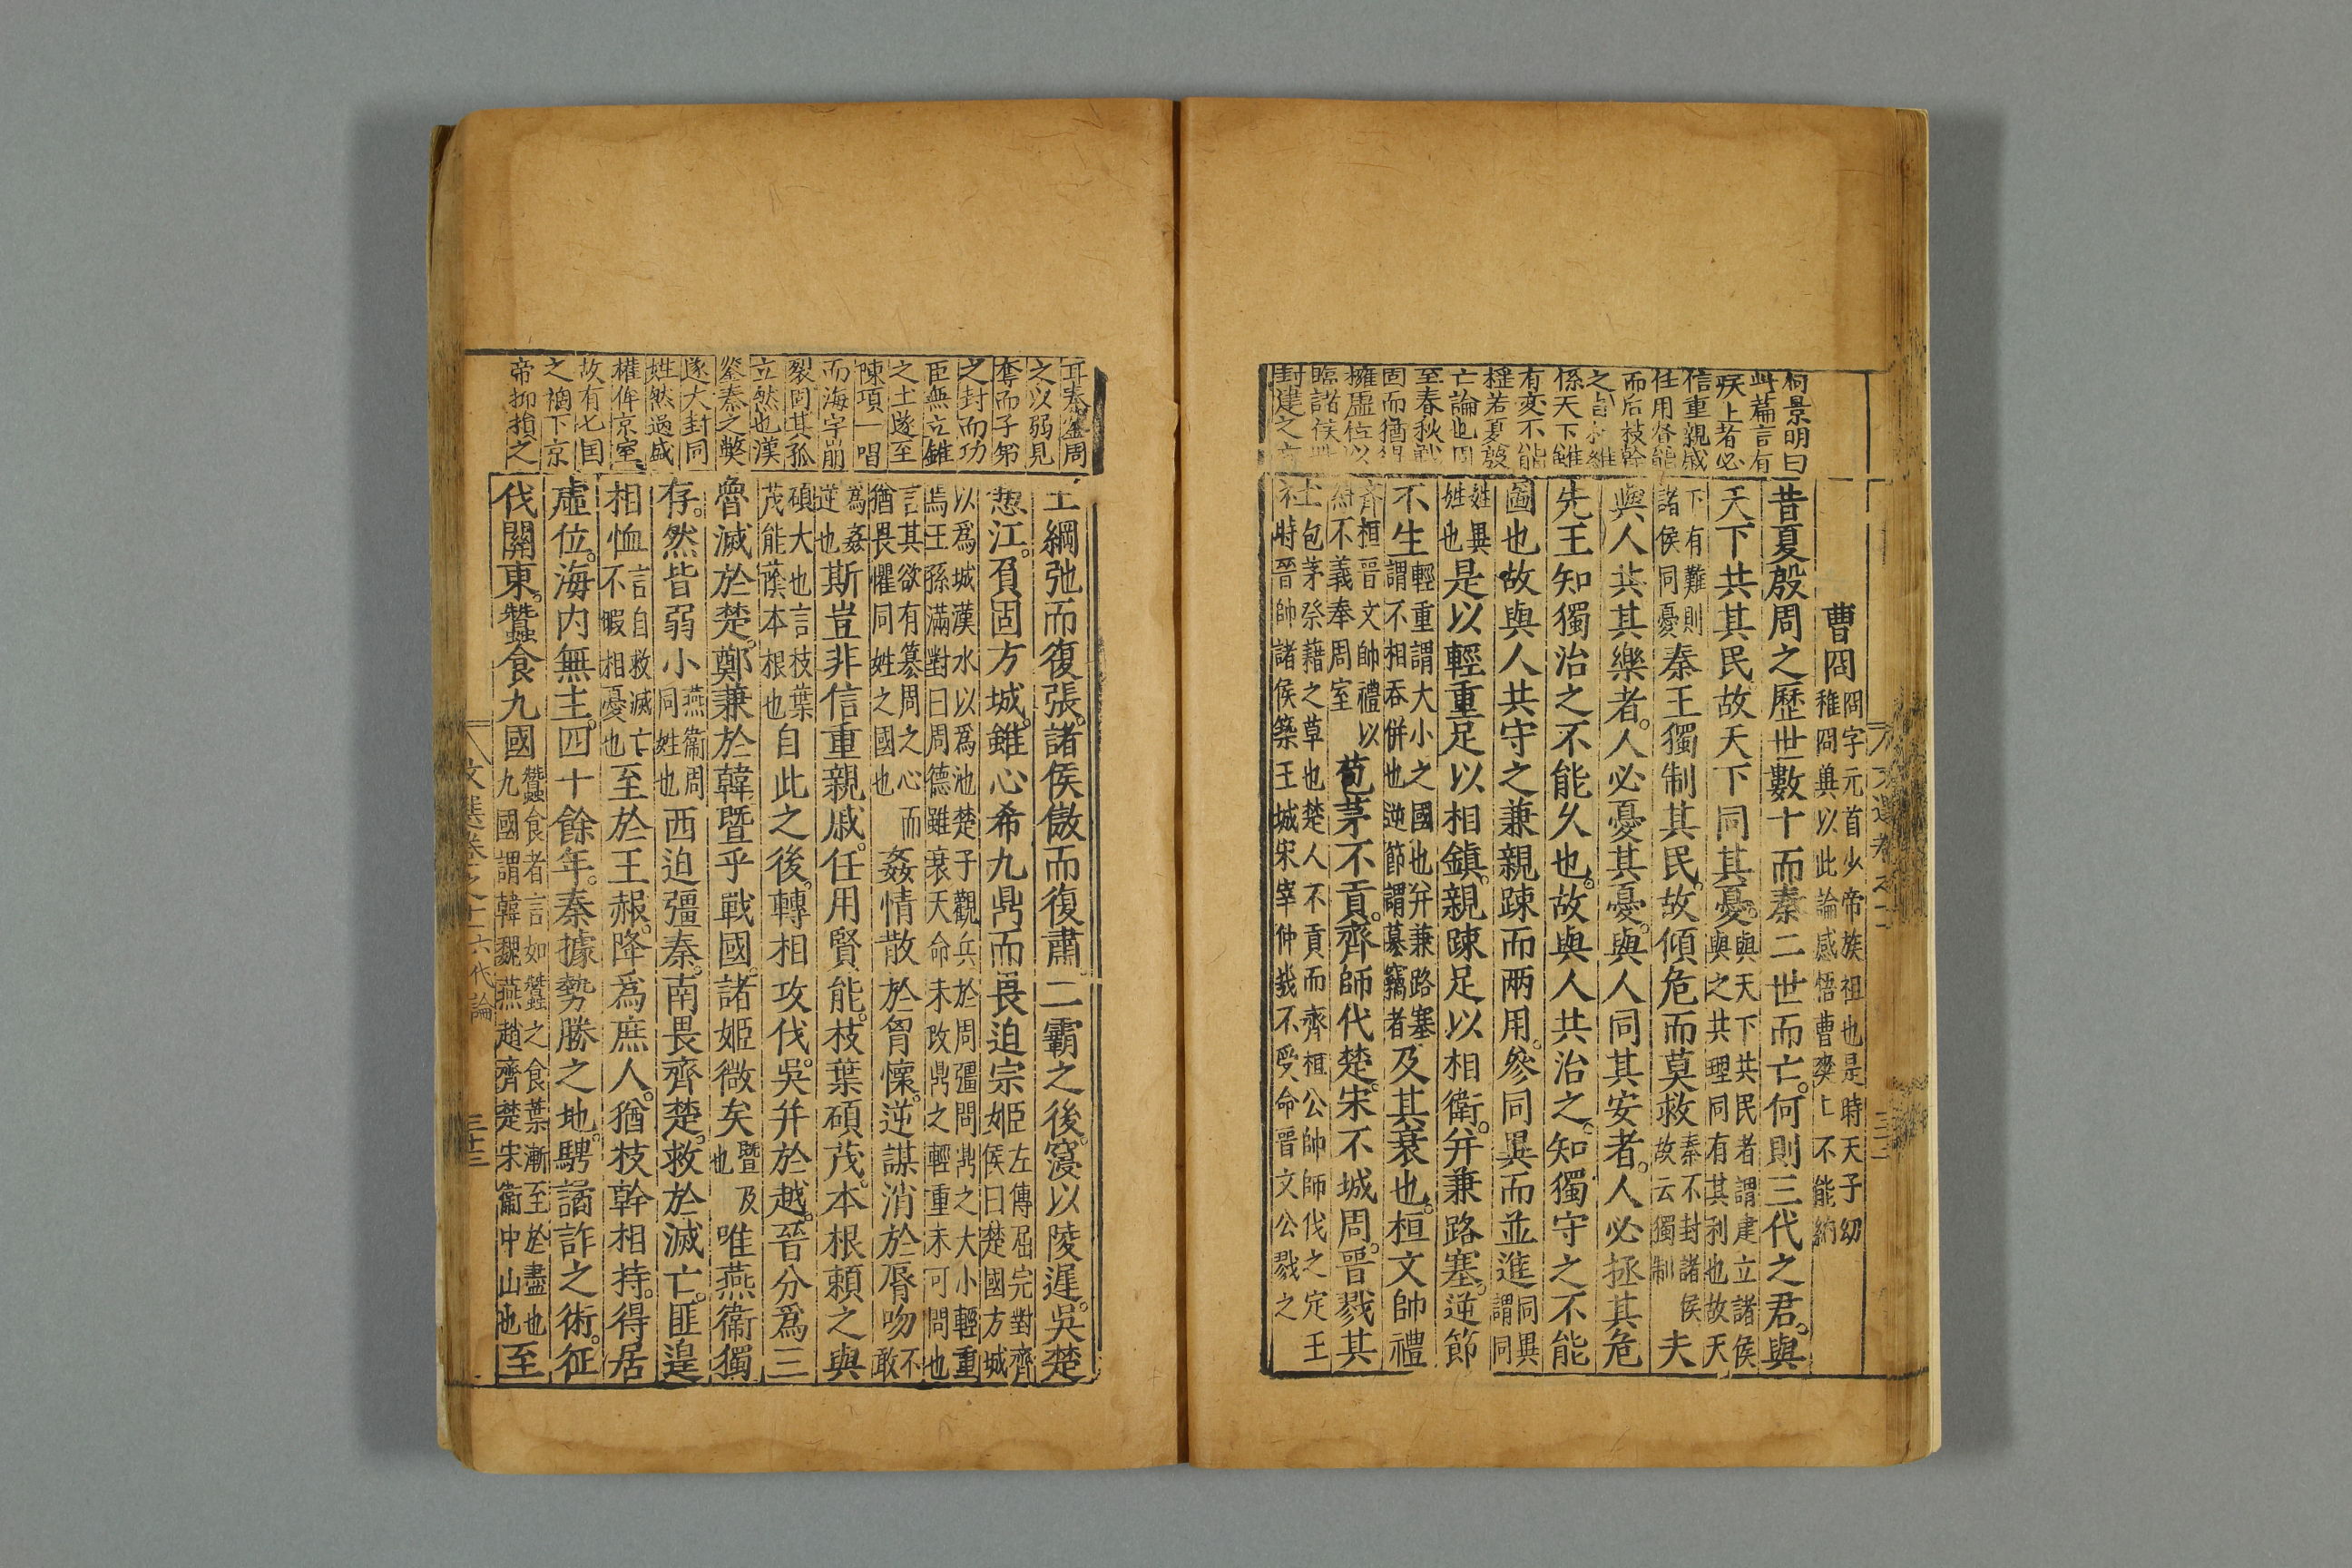 何景明曰
此篇言有
疾上者必
信重親戚
任用督能
而后枝幹
係天下雖
有变不能
極若夏殷
亡論也周
至春秋戰
固而猶得
擁虛位以
臨諸侯
封建之
曹冏 冏字元首少帝族祖也是時天子幼稚冏冀以此論感悟曹爽上不能納
昔夏殷周之歷世數十而秦二世而亡。何則三代之君。與
天下共其民故天下同其憂。與天下共民者謂建立諸侯與之共理同有其利也故天
下有難則諸侯同憂 秦王獨制其民。故傾危而莫救 秦不封諸侯故云獨制 夫
與人共其樂者。人必憂其憂。與人同其安者。人必拯其危
先王知獨治之不能久也。故與人共治之。知獨守之不能
固也故與人共守之兼親踈而兩用。參同異而並進 同異謂同
姓異姓也 是以輕重足以相鎮。親踈足以相衛。并兼路塞。逆節
不生 輕重謂大小之國也并兼路塞謂不相吞併也逆節謂墓竊者 及其衰也。桓文帥禮
齊桓晉文帥禮以糾不義奉周室 苞茅不貢。齊師代楚。宋不城周。晋戮其
包茅祭藉之草也楚人不貢而齊桓公帥師伐之定王 時晉帥諸侯築王城宋宰仲㡬不受命晋文公戮之
耳秦鍳周
之以弱見
奪而子弟
之封而功
臣無立錐
之土遂至
陳項一唱
而海字崩
裂固其孤
立然也漢
鍳秦之弊
遂大封同
姓然過盛
權侔京室
故有七国
之禍下京
帝抑損之
王綱弛而復張。諸侯傲而復肅。二霸之後。寖以陵遲。吳楚
憑江。負固方城。雖心希九鼎而畏迫宗姬 左傳屈完對齊侯曰楚國方城
以爲城漢水以爲池楚子觀兵於周彊問鼎之大小輕重焉王孫滿對曰周德雖衰天命未改鼎之輕重未可問也
言其欲有篡周之心而猶畏懼同姓之國也 姦情散於胷懷。逆謀消於脣吻 不敢
爲姦逆也 斯豈非信重親戚。任用賢能。枝葉碩茂。本根賴之與
碩大也言枝葉茂能蔭本根也 自此之後。轉相攻伐。吳并於越。晉分爲三
魯滅於楚。鄭兼於韓暨乎戰國。諸姬微矣 暨及也 唯燕衞獨
存。然皆弱小 燕衞周同姓也 西迫彊秦。南畏齊楚。救於滅亡。匪遑
相恤 言自救滅亡不暇相憂也 至於王赧。降爲庶人。猶枝幹相持。得居
虛位。海内無主。四十餘年。秦據勢勝之地。騁譎詐之術。征
伐關東。蠶食九國 蠶食者言如蠶之食葉漸至於盡也九國謂韓魏燕趙齊楚宋衞中山也 至
文選卷之十二 六代論 三十三